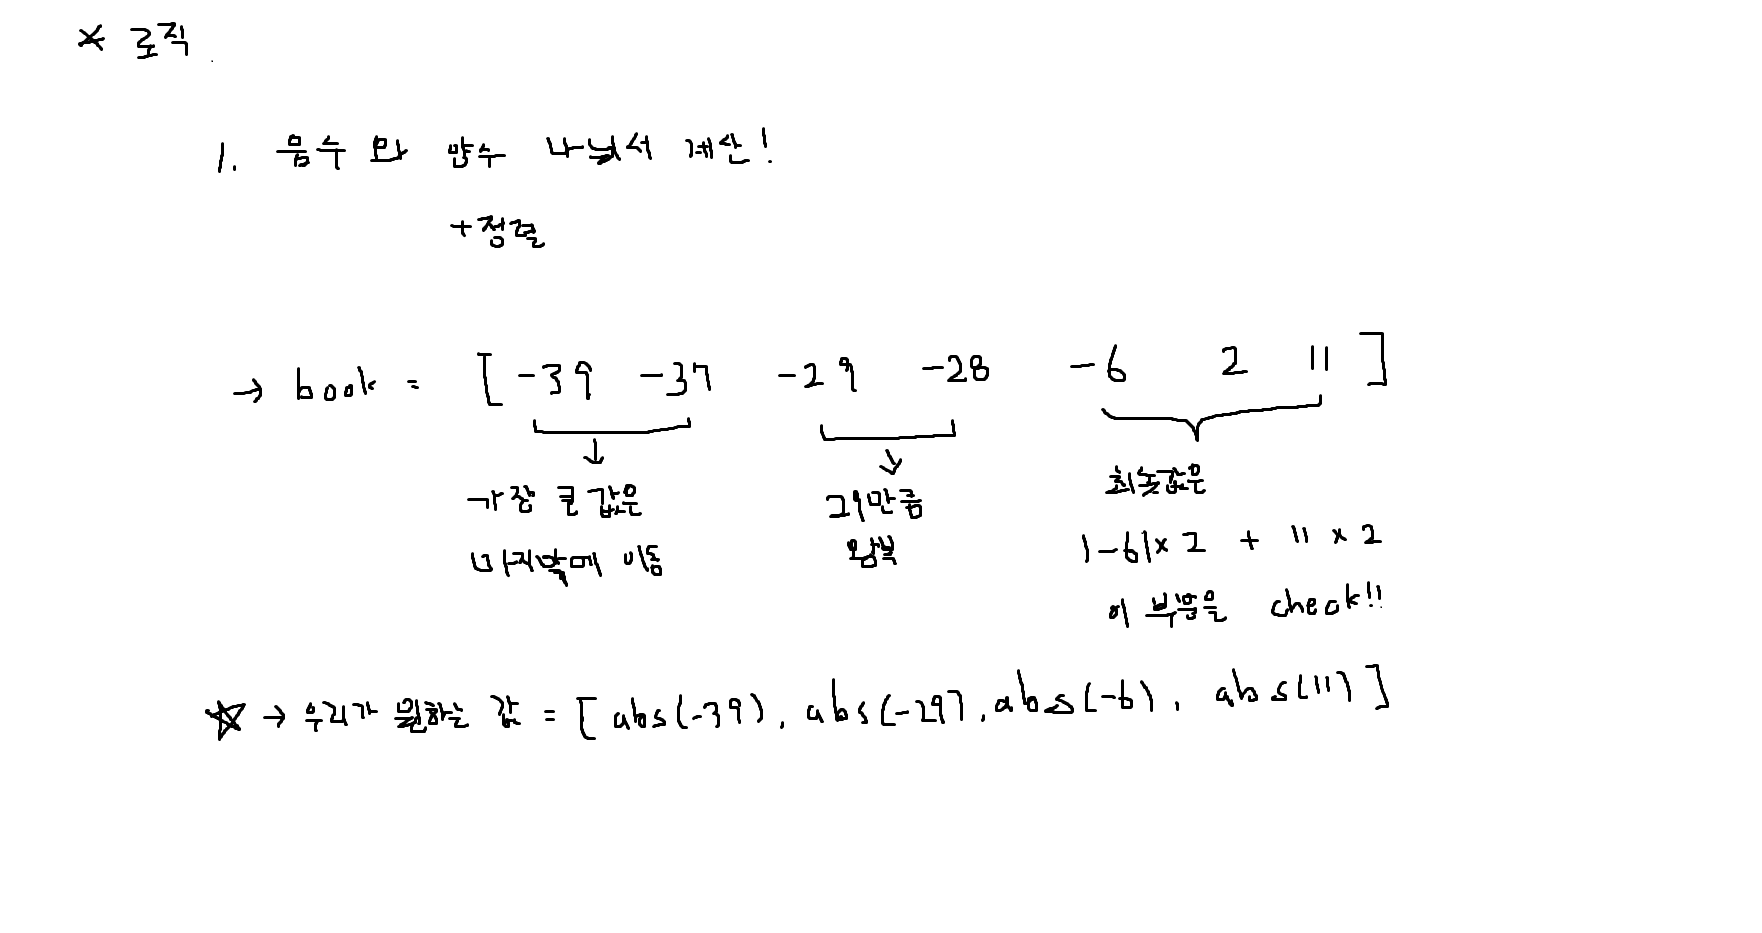 * 로직
1. 음수 와 양수 나눠서 계산!
+정렬
→ book = [ -39 -37 -29 -28 -6 2 11 ]
가장 큰 값은
마지막에 이동
그만큼
왕복
최솟값은
|-6|x 2 + 11 x 2
이 부분을 check!!
☆ → 우리가 원하는 값 = [ abs(-39), abs(-29), abs(-6), abs(11) ]